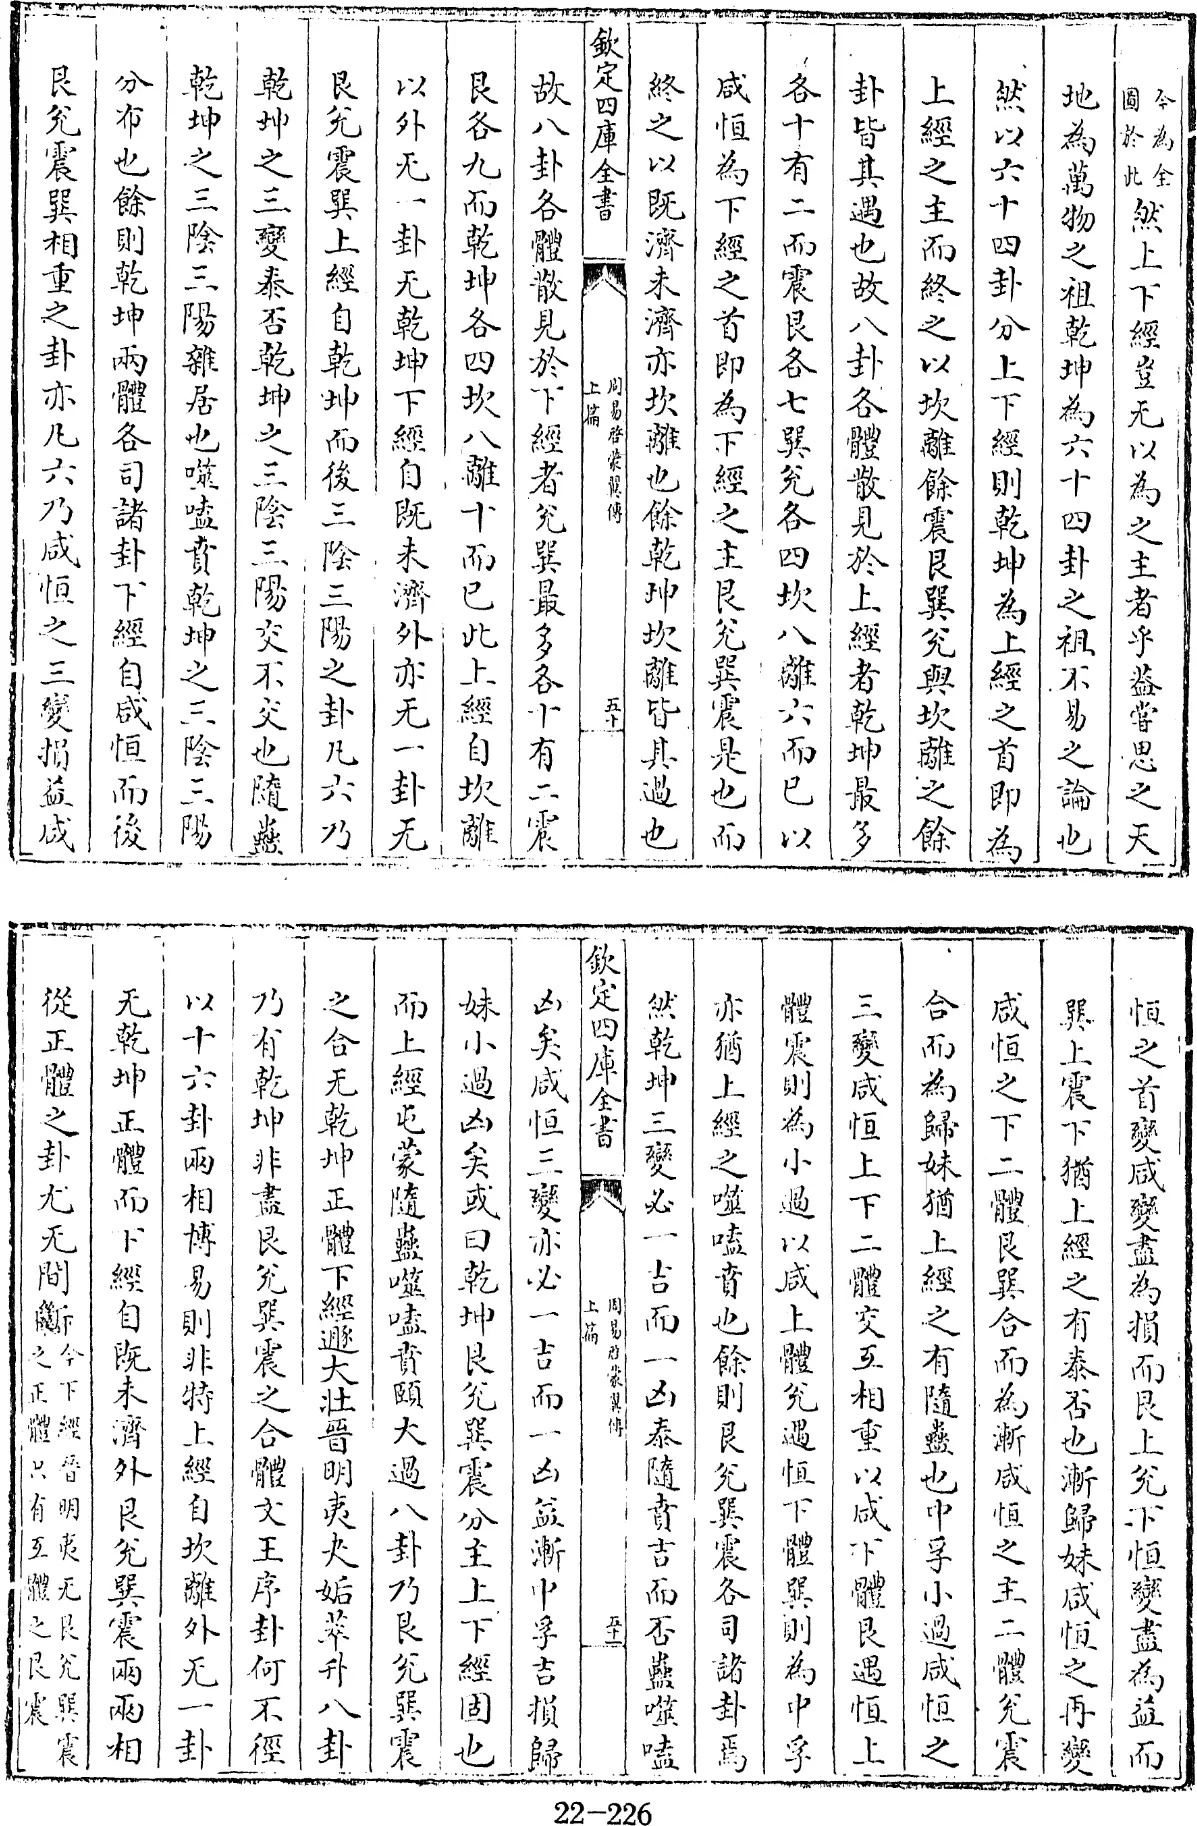 今為全圖於此然上下經豈无以為之主者乎葢嘗思之天
地為萬物之祖乾坤為六十四卦之祖不易之論也
然以六十四卦分上下經則乾坤為上經之首即為
上經之主而終之以坎離餘震艮巽兊與坎離之餘
卦皆其遇也故八卦各體散見於上經者乾坤最多
各十有二而震艮各七巽兊各四坎八離六而已以
咸恒為下經之首即為下經之主艮兊巽震是也而
終之以既濟未濟亦坎離也餘乾坤坎離皆其過也
欽定四庫全書
周易啓蒙翼傳
上篇
五十
故八卦各體散見於下經者兊巽最多各十有二震
艮各九而乾坤各四坎八離十而已此上經自坎離
以外无一卦无乾坤下經自既未濟外亦无一卦无
艮兊震巽上經自乾坤而後三陰三陽之卦凡六乃
乾坤之三變泰否乾坤之三陰三陽交不交也隨蠱
乾坤之三陰三陽雜居也噬嗑賁乾坤之三陰三陽
分布也餘則乾坤兩體各司諸卦下經自咸恒而後
艮兊震巽相重之卦亦凡六乃咸恒之三變損益咸
恒之首變咸變盡為損而艮上兊下恒變盡為益而
巽上震下猶上經之有泰否也漸歸妹咸恒之再變
咸恒之下二體艮巽合而為漸咸恒之主二體兊震
合而為歸妹猶上經之有隨蠱也中孚小過咸恒之
三變咸恒上下二體交互相重以咸下體艮遇恒上
體震則為小過以咸上體兊遇恒下體巽則為中孚
亦猶上經之噬嗑賁也餘則艮兊巽震各司諸卦焉
然乾坤三變必一吉而一凶泰隨賁吉而否蠱噬嗑
欽定四庫全書
周易啓蒙翼傳
上篇
五十一
凶矣咸恒三變亦必一吉而一凶益漸中孚吉損歸
妹小過凶矣或曰乾坤艮兊巽震分主上下經固也
而上經屯蒙隨蠱噬嗑賁頤大過八卦乃艮兊巽震
之合无乾坤正體下經遯大壯晉明夷夬姤萃升八卦
乃有乾坤非盡艮兊巽震之合體文王序卦何不徑
以十六卦兩相博易則非特上經自坎離外无一卦
无乾坤正體而下經自既未濟外艮兊巽震兩兩相
從正體之卦尤无間斷今下經晉明夷无艮兊巽震之正體只有互體之艮震